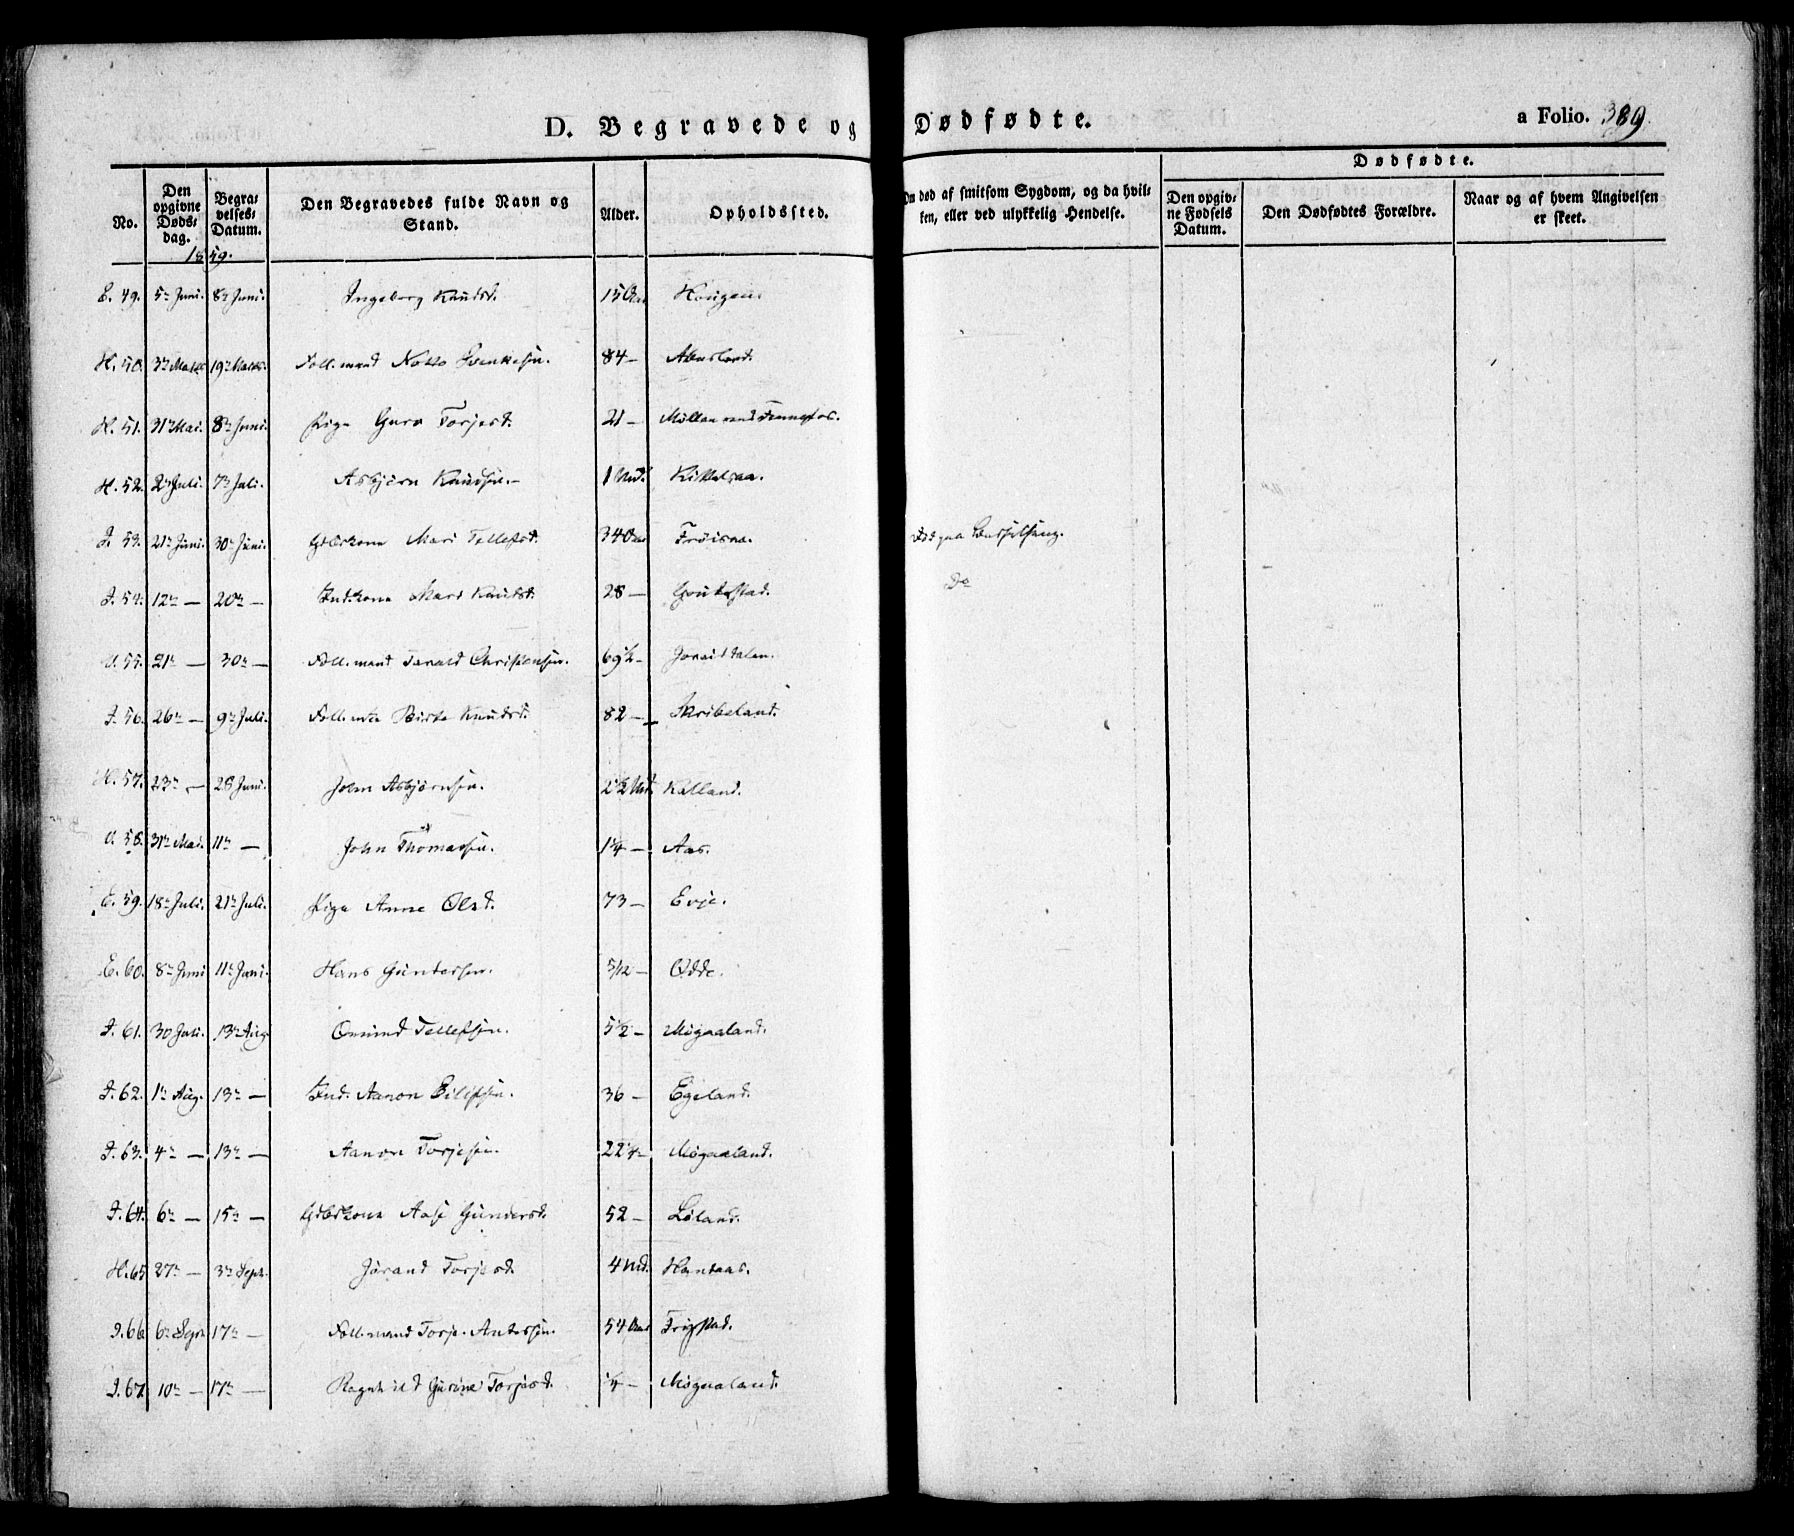 D. Begravede og Dødfødte.
a Folio. 389.
No.
Den opgivne Døds-dag.
Begra-velses-Datum.
Den Begravedes fulde Navn og Stand.
Alder.
Opholdssted.
Om død af smitsom Sygdom, og da hvil-ken, eller ved ulykkelig Hendelse.
Dødfødte.
Den opgiv-ne Fødsels Datum.
Den Dødfødtes Forældre.
Naar og af hvem Angivelsen er skeet.
1859.
E. 49. 5te Juni. 8de Juni. Ingeborg Knudsd. 15 Aar Hougen.
H. 50. 3die Marts 19de Marts. Follmand 84 — Abusland.
H. 51. 31te Mai. 8de Juni. Pige Guro Torjesd. 21 — Møllen ved Fennefos.
H. 52. 2den Juli. 7de Juli. Asbjørn Knudsen. 1 Md. Kittelsaa.
I. 53. 21de Juni. 30te Juni. Gbrkone Mari Tellefsd. 34 Aar Frøisaa. Død paa Barselseng.
I. 54. 12te — 20de — Indkone Mari Knudsd. 28 — Goutestad. Do
55. 21de — 30te — Follmand Tarald Christensen. 69½ — Joreiddalen.
I. 56. 26de — 9de Juli. Follente Birte Knudsd. 82 — Skribeland.
H. 57. 23de — 28 Juni. John Asbjørnsen. 2½ Md. Kalland.
58. 31te Mai. 11te — John Thomassen. 1¼ — Aas.
E. 59. 18de Juli. 21de Juli. Pige Anne Olsd. 73 — Evje.
E. 60. 8de Juni 11te Juni. Hans Gundersen. 5/12 — Odde.
I. 61. 30 Juli. 13de Aug. Omund Tellefsen. 5½ — Møgaaland.
I. 62. 1ste Aug. 13de — Ind. Aanon Eilefsen. 36 — Egeland.
I. 63. 4de — 13de — Aanon Torjesen. 22¼ — Møgaaland.
I. 64. 6te — 15de — Gbrkone Aase Gundersd. 52 — Løland.
H. 65 27de — 3die Septr. Jørand Torjesd. 4 Md. Hantaas.
I. 66. 6te Septr 17de — Follmand Torje Andersen. 54 Aar Frigstad.
I. 67. 10de — 17de — Ragnhild Gurine Torjesd. ¼ — Møgaaland.